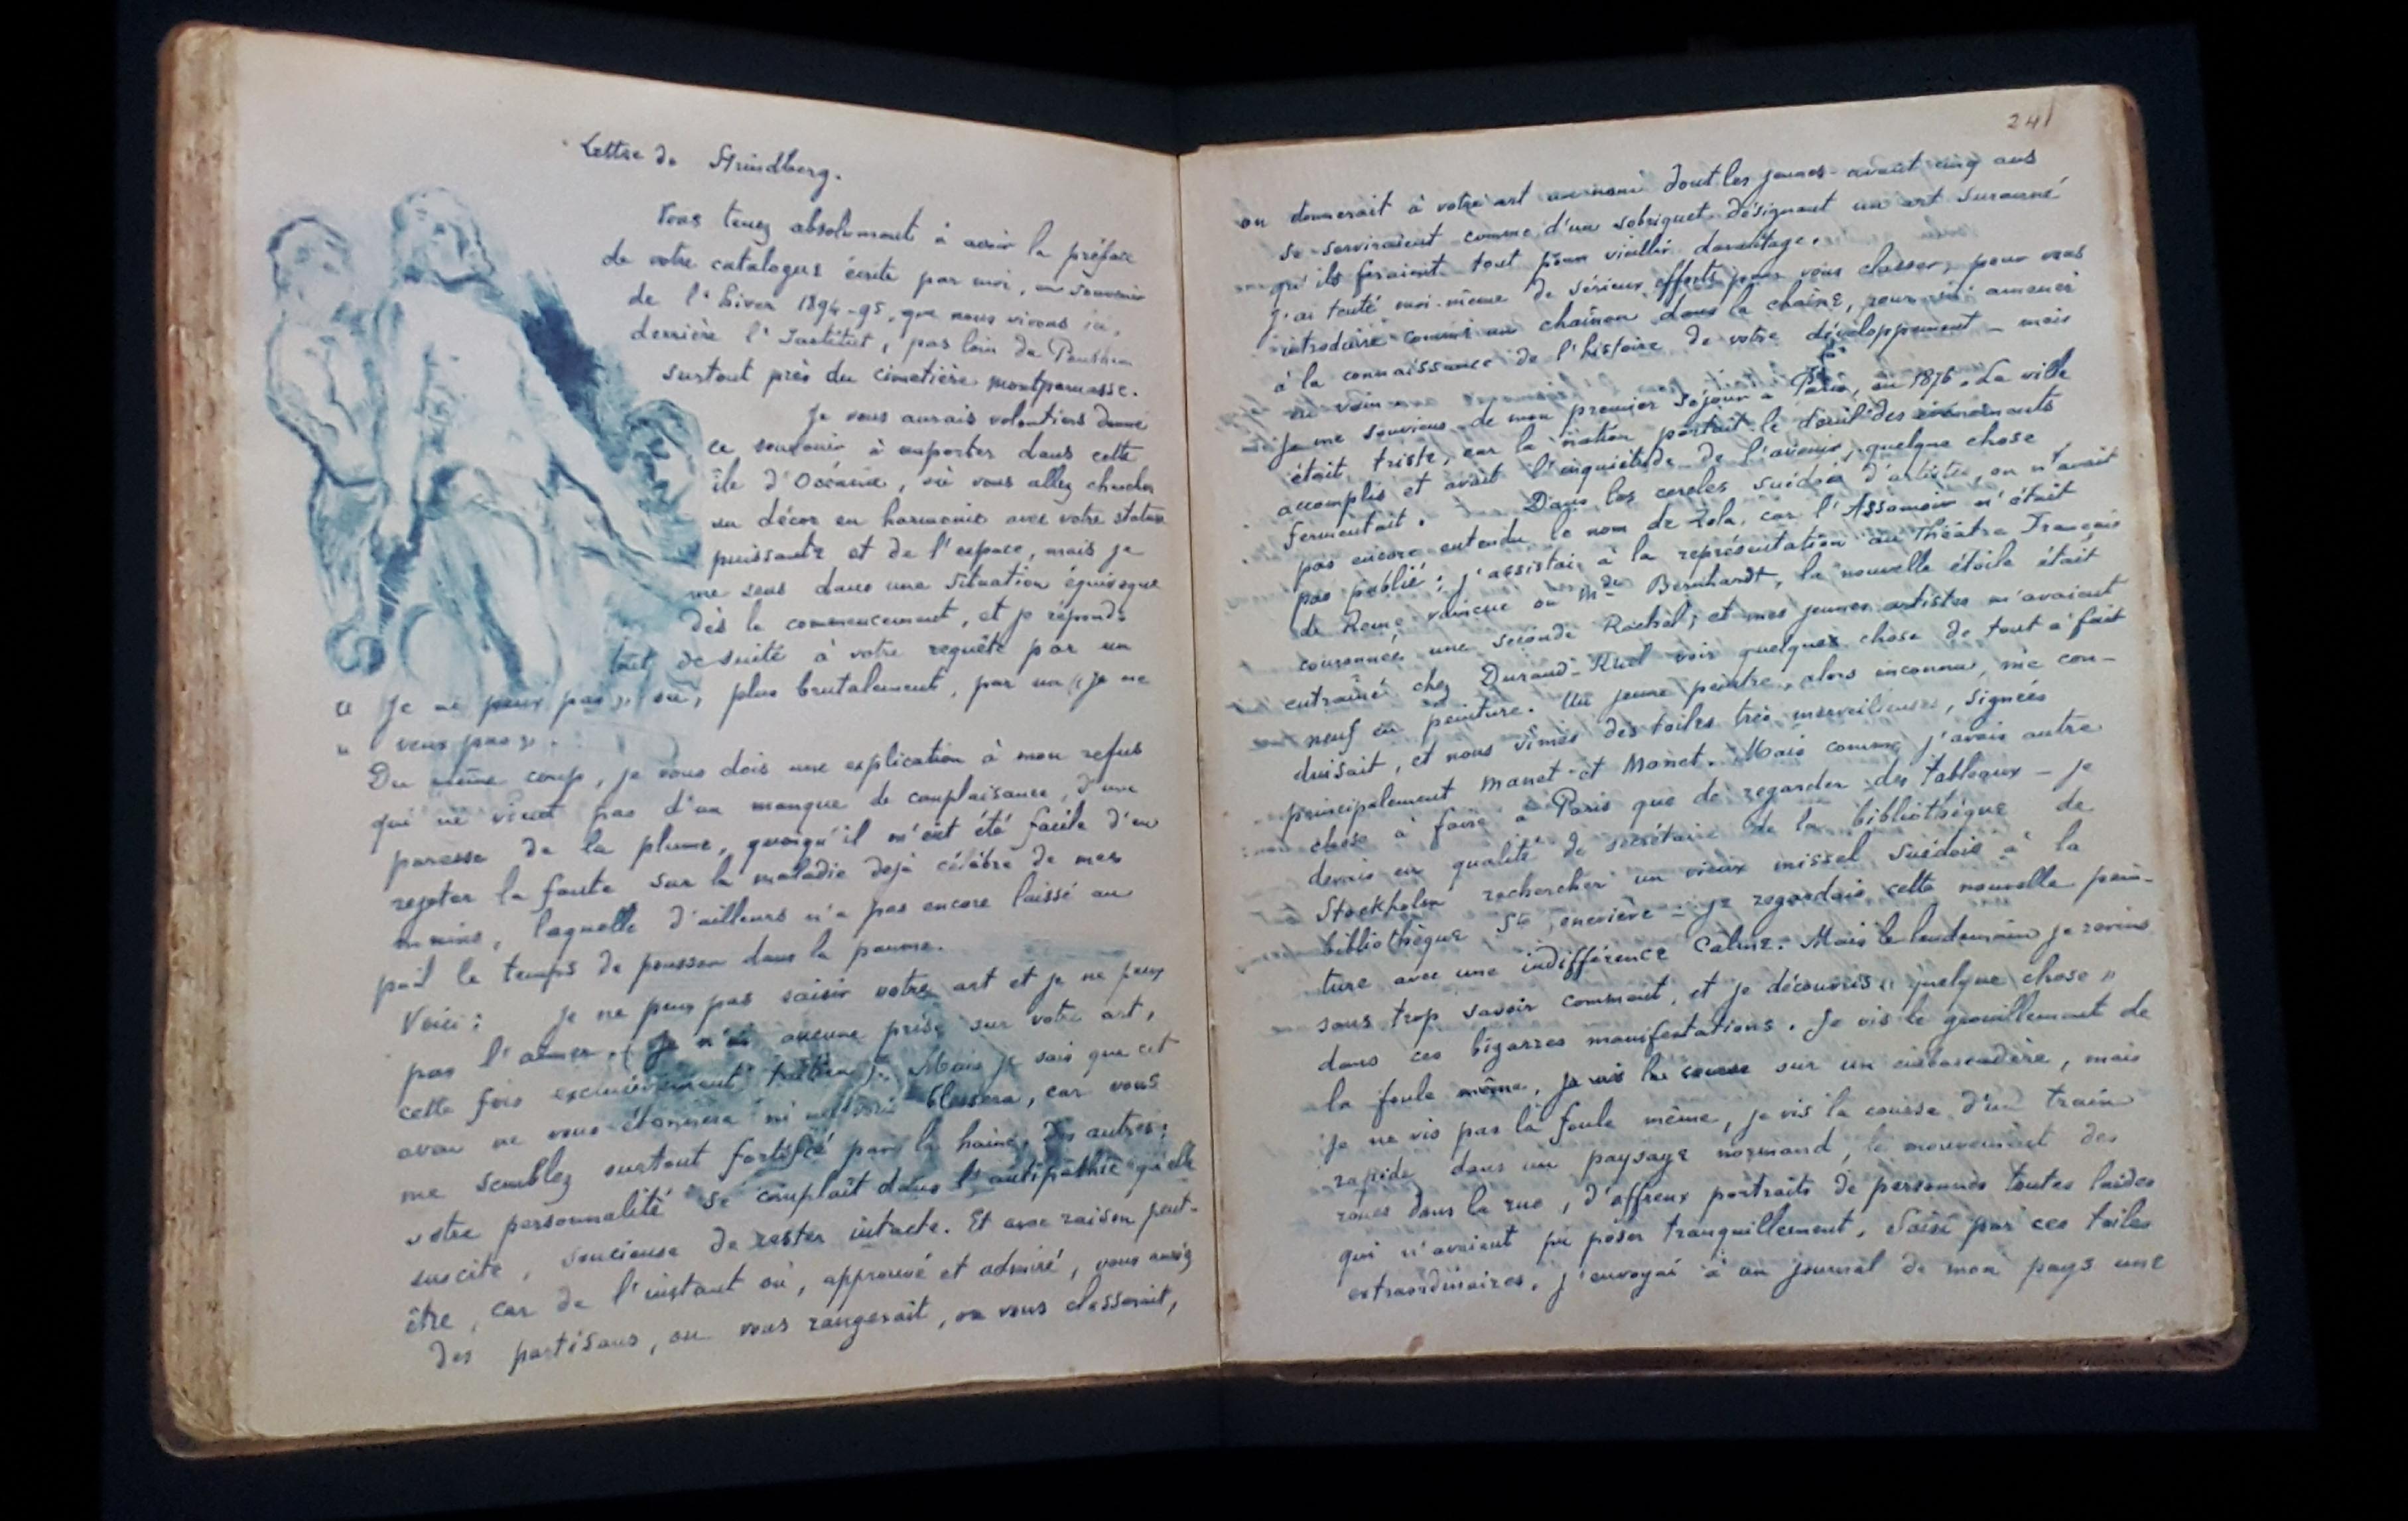 Lettre de Strindberg.
Vous tenez absolument à avoir la préface
de votre catalogue écrite par moi, en souvenir
de l'hiver 1894-95, que nous vivons ici,
derrière l'Institut, pas loin du Panthéon
surtout près du cimetière Montparnasse.
Je vous aurais volontiers donné
ce souvenir à emporter dans cette
île d'Océanie, où vous allez chercher
un décor en harmonie avec votre stature
puissante et de l'espace, mais je
me sens dans une situation équivoque
dès le commencement, et je réponds
tout de suite à votre requête par un
" je ne peux pas " ou, plus brutalement, par un " je ne
" veux pas ".
Du même coup, je vous dois une explication à mon refus
qui ne vient pas d'un manque de complaisance, d'une
paresse de la plume, quoiqu'il m'eût été facile d'en
rejeter la faute sur la maladie dejà célèbre de mes
mains, laquelle d'ailleurs n'a pas encore laissé au
poil le temps de pousser dans la paume.
Voici : Je ne peux pas saisir votre art et je ne peux
pas l'aimer. (Je n'ai aucune prise sur votre art,
cette fois exclusivement tahitien). Mais je sais que cet
aveu ne vous étonnera ni ne vous blessera, car vous
me semblez surtout fortifié par la haine des autres :
votre personnalité se complaît dans l'antipathie qu'elle
suscite, soucieuse de rester intacte. Et avec raison peut-
être, car de l'instant où, approuvé et admiré, vous auriez
des partisans, on vous rangerait, on vous classerait,
241
on donnerait à votre art un nom dont les jeunes avant cinq ans
se serviraient comme d'un sobriquet désignant un art suranné
qu'ils feraient tout pour vieillir davantage.
J'ai tenté moi-même de sérieux efforts pour vous classer, pour vous
introduire comme un chaînon dans la chaîne, pour m'amener
à la connaissance de l'histoire de votre développement - mais
en vain.
Je me souviens de mon premier séjour à Paris, en 1876. La ville
était triste, car la nation portait le deuil des événements
accomplis et avait l'inquiétude de l'avenir, quelque chose
fermentait. Dans les cercles suédois d'artistes, on n'avait
pas encore entendu le nom de Zola, car l'Assomoir n'était
pas publié ; j'assistai à la représentation au Théâtre Français
de Rome vaincue où Mde Bernhardt, la nouvelle étoile était
couronnée une seconde Rachel, et mes jeunes artistes m'avaient
entraîné chez Durand-Ruel voir quelque chose de tout à fait
neuf en peinture. Un jeune peintre, alors inconnu, me con-
duisait, et nous vîmes des toiles très merveilleuses, signées
principalement Manet et Monet. Mais comme j'avais autre
chose à faire à Paris que de regarder des tableaux - je
devais en qualité de secrétaire de la bibliothèque de
Stockholm rechercher un vieux missel suédois à la
bibliothèque Ste eneviève - je regardais cette nouvelle pein-
ture avec une indifférence calme. Mais le lendemain je revins
sans trop savoir comment, et je découvris " quelque chose "
dans ces bizarres manifestations. Je vis le grouillement de
la foule même, je vis la course sur un embarcadère, mais
je ne vis pas la foule même, je vis la course d'un train
rapide dans un paysage normand, le mouvement des
roues dans la rue, d'affreux portraits de personnes toutes laides
qui n'avaient pu poser tranquillement. Saisi par ces toiles
extraordinaires, j'envoyai à un journal de mon pays une